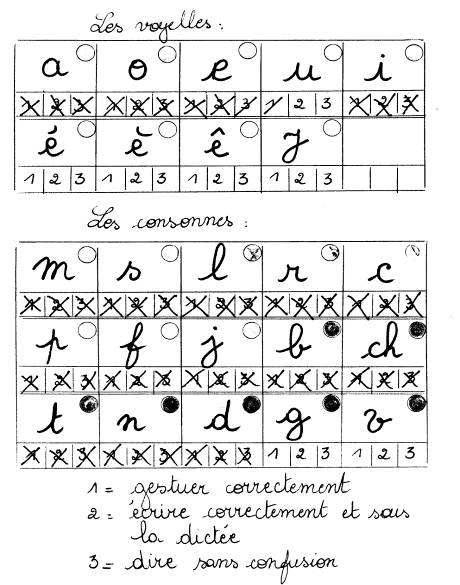 Les voyelles :
a o e u i
1 2 3 1 2 3 1 2 3 1 2 3 1 2 3
é è ê y
1 2 3 1 2 3 1 2 3 1 2 3
Les consonnes :
m s l r c
1 2 3 1 2 3 1 2 3 1 2 3 1 2 3
p f j b ch
1 2 3 1 2 3 1 2 3 1 2 3 1 2 3
t n d g v
1 2 3 1 2 3 1 2 3 1 2 3 1 2 3
1 = gestuer correctement
2 = écrire correctement et sous
la dictée
3 = dire sans confusion